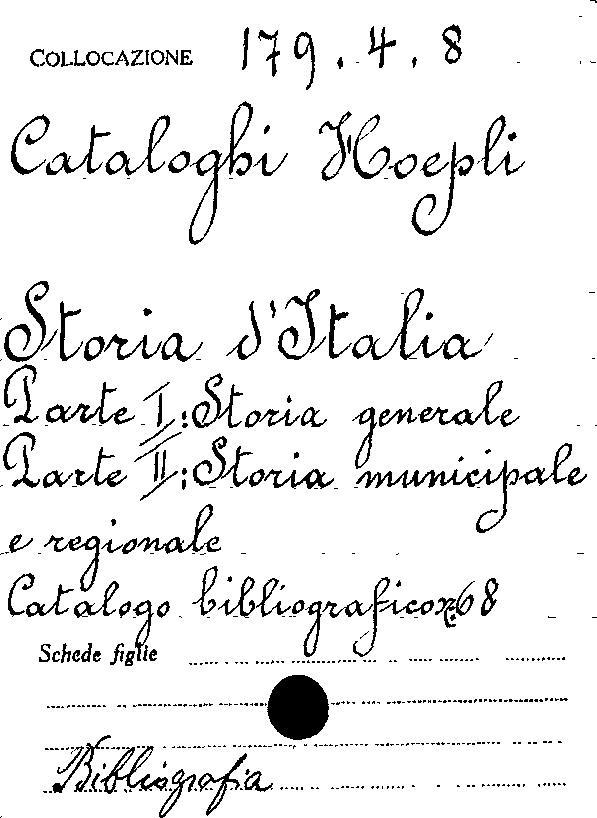 COLLOCAZIONE 179.4.8
Cataloghi Hoepli
Storia d'Italia
Parte I: Storia generale
Parte II: Storia municipale
e regionale
Catalogo bibliografico n. 68
Schede figlie
Bibliografia